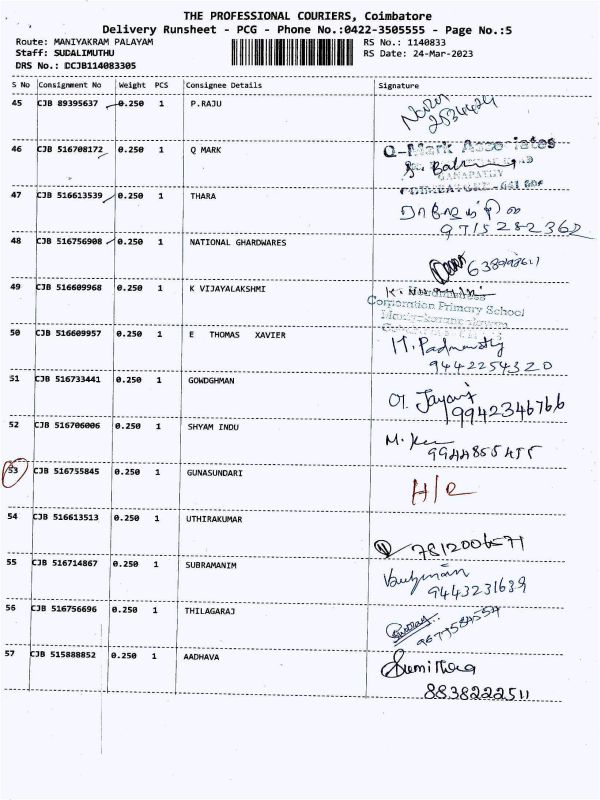 THE PROFESSIONAL COURIERS, Coimbatore
Delivery Runsheet - PCG - Phone No.:0422-3505555 - Page No.:5
Route: MANIYAKRAM PALAYAM RS No.: 1140833
Staff: SUDALIMUTHU RS Date: 24-Mar-2023
DRS No.: DCJB114083305
S No Consignment No Weight PCS Consignee Details Signature
45 CJB 89395637 0.250 1 P.RAJU
46 CJB 516708172 0.250 1 Q MARK Q-Mark Associates
GANAPATHY
47 CJB 516613539 0.250 1 THARA
9715282362
48 CJB 516756908 0.250 1 NATIONAL GHARDWARES
49 CJB 516609968 0.250 1 K VIJAYALAKSHMI
Corporation Primary School
50 CJB 516609957 0.250 1 E THOMAS XAVIER
9442254320
51 CJB 516733441 0.250 1 GOWDGHMAN
9942346766
52 CJB 516706006 0.250 1 SHYAM INDU
9944855455
53 CJB 516755845 0.250 1 GUNASUNDARI
54 CJB 516613513 0.250 1 UTHIRAKUMAR
7812006571
55 CJB 516714867 0.250 1 SUBRAMANIM
9443231639
56 CJB 516756696 0.250 1 THILAGARAJ
57 CJB 515888852 0.250 1 AADHAVA Sumithra
8838222511